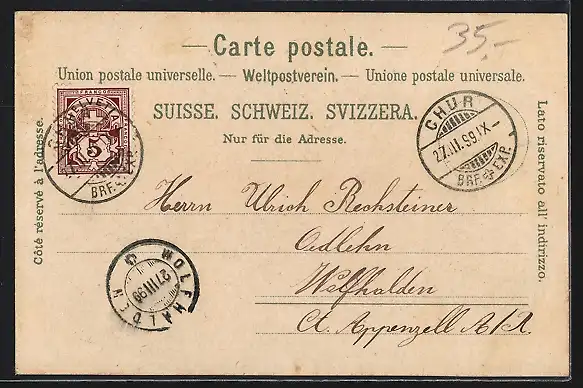 35.-
— Carte postale. —
Union postale universelle. — Weltpostverein. — Unione postale universale.
SUISSE. SCHWEIZ. SVIZZERA.
Nur für die Adresse.
Côté réservé à l'adresse.
Lato riservato all' indirizzo.
FRANCO
HELVETIA
5
BRF. EXP.
CHUR
27.II.99.IX-
BRF. EXP.
Herrn Ulrich Rechsteiner
Oedlehn
Wolfhalden
Ct. Appenzell A/R
WOLFHALDEN
27 II 99